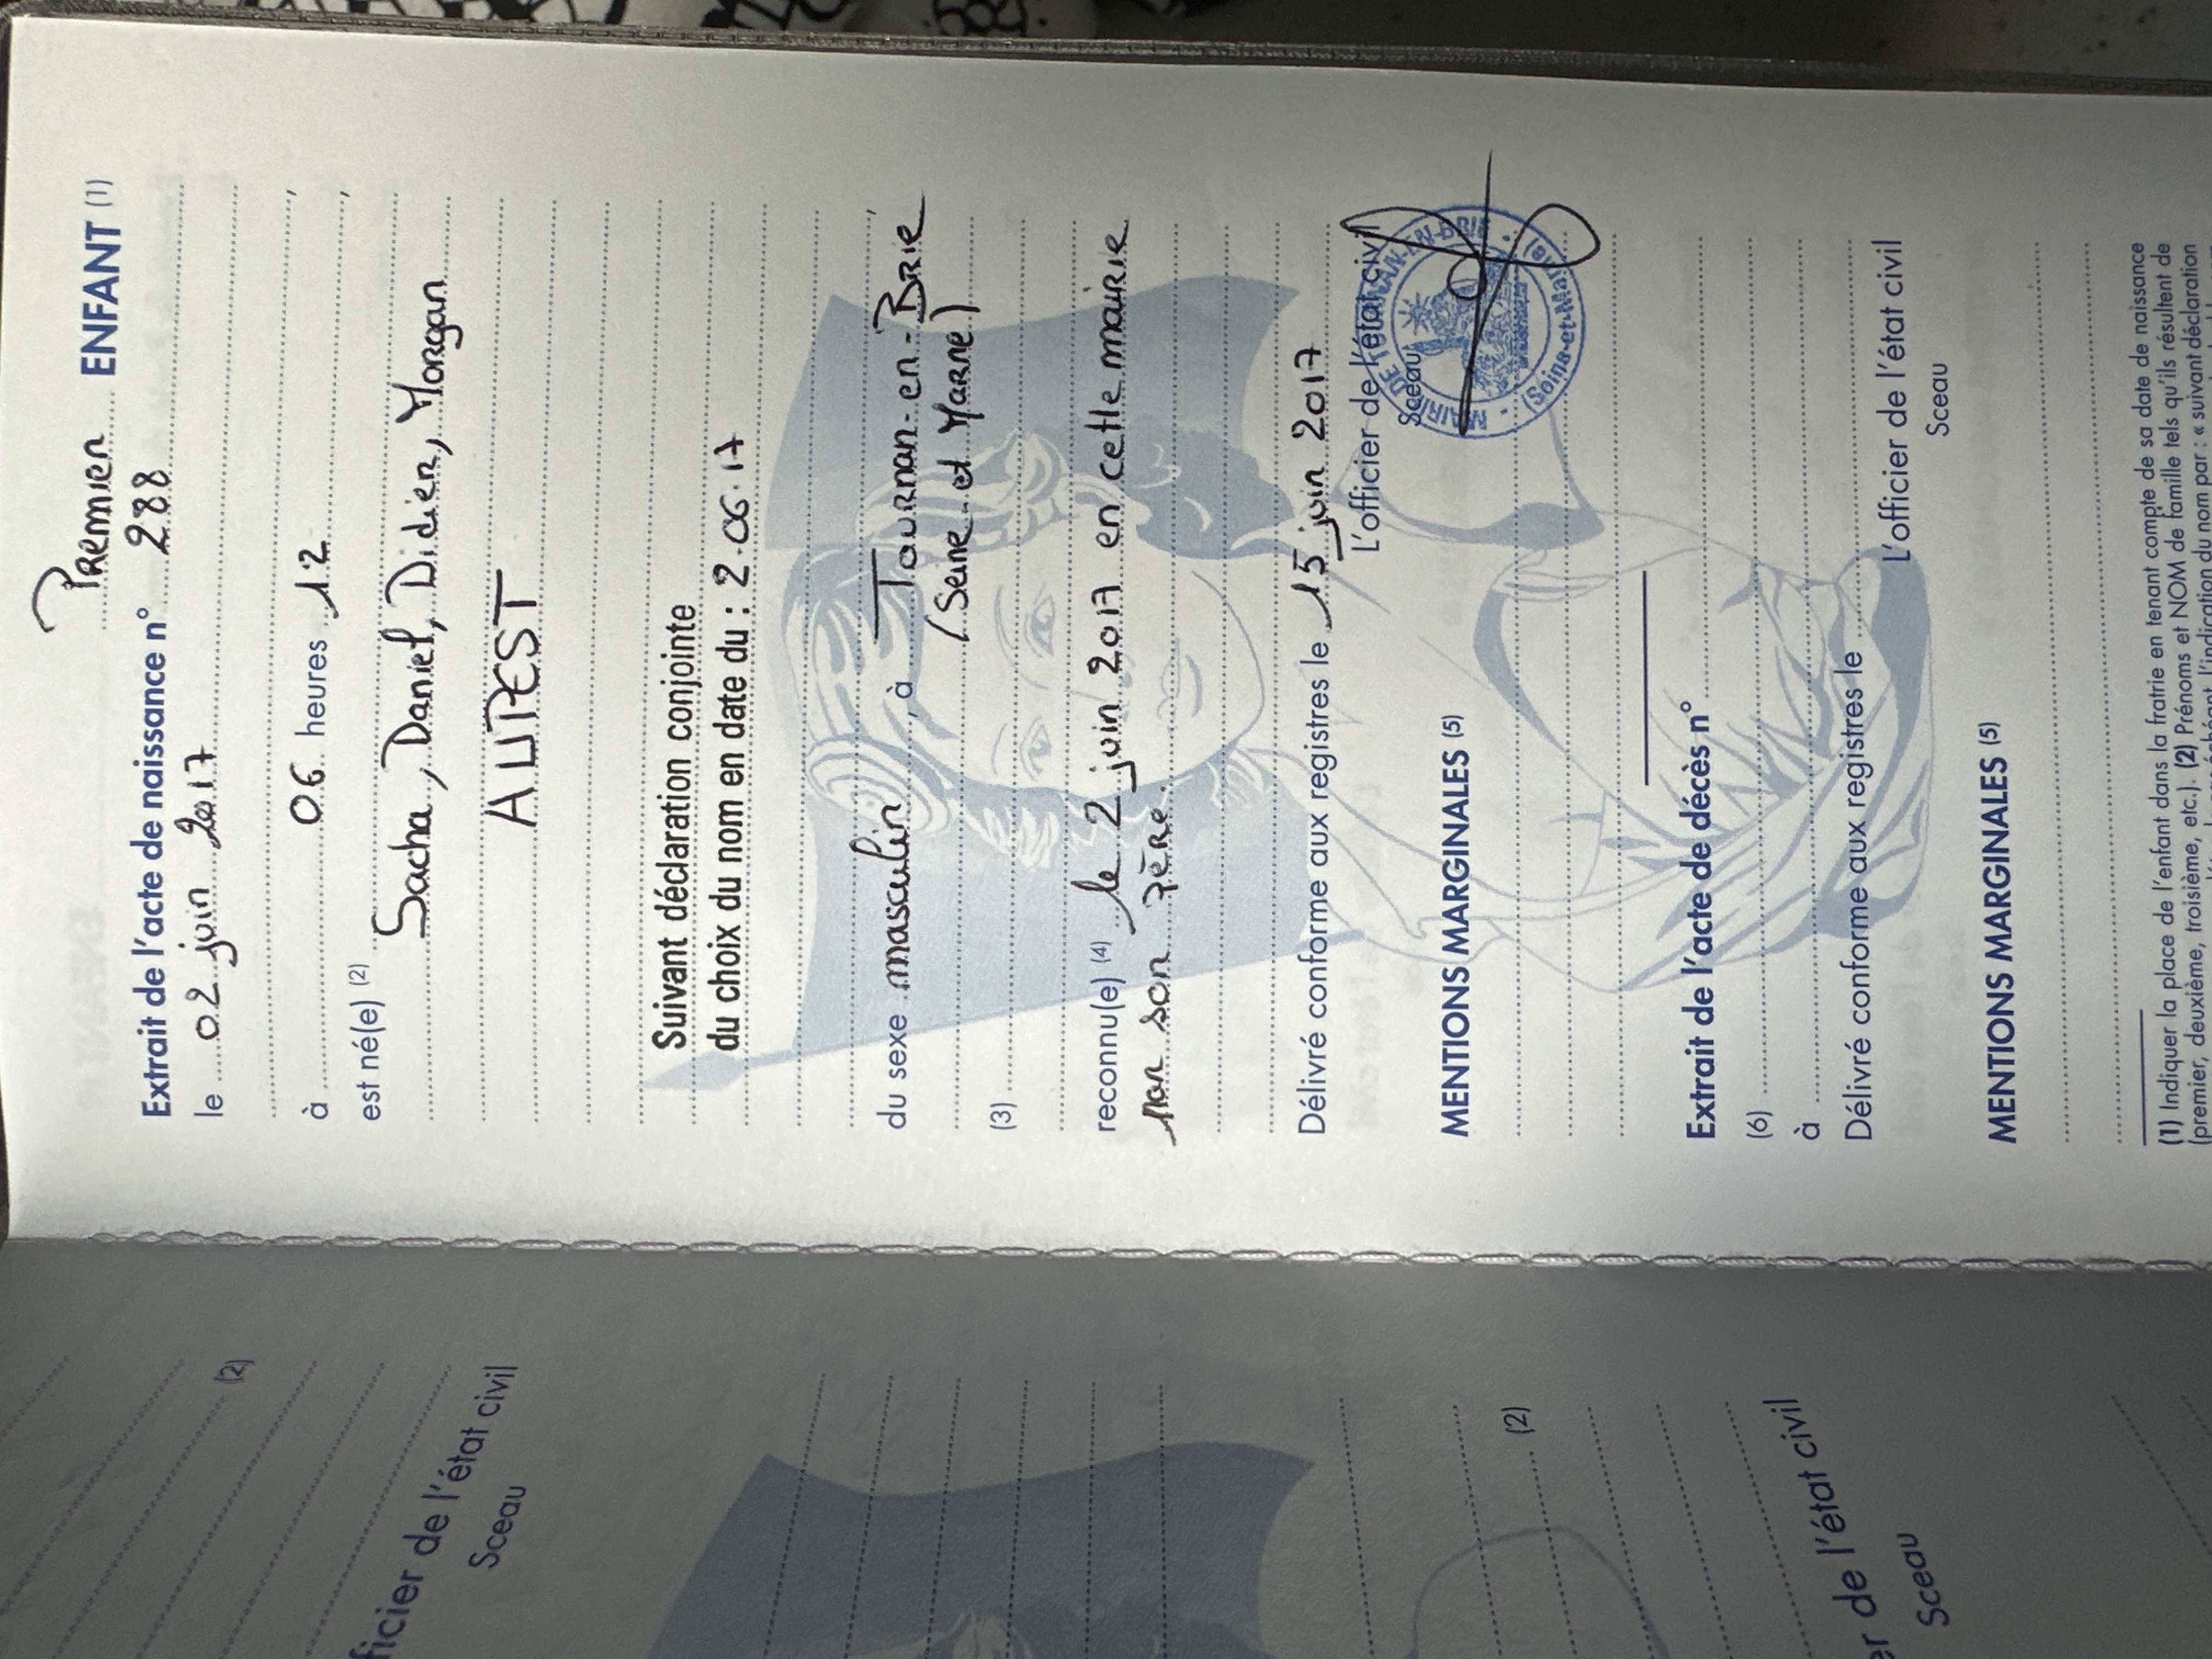 Premier ENFANT (1)
Extrait de l'acte de naissance n° 288
le 02 juin 2017
à 06 heures 12,
est né(e) (2) Sacha, Daniel, Didier, Morgan
AUPEST
Suivant déclaration conjointe
du choix du nom en date du : 2.06.17
du sexe masculin, à Tournan-en-Brie,
(Seine et Marne)
(3)
reconnu(e) (4) le 2 juin 2017 en cette mairie
par son père.
Délivré conforme aux registres le 15 juin 2017
L'officier de l'état civil
Sceau
MAIRIE DE TOURNAN-EN-BRIE
(Seine-et-Marne)
MENTIONS MARGINALES (5)
Extrait de l'acte de décès n°
(6)
à
Délivré conforme aux registres le
L'officier de l'état civil
Sceau
MENTIONS MARGINALES (5)
(1) Indiquer la place de l'enfant dans la fratrie en tenant compte de sa date de naissance
(premier, deuxième, troisième, etc.). (2) Prénoms et NOM de famille tels qu'ils résultent de
l'indication du nom par : « suivant déclaration
(2)
ficier de l'état civil
Sceau
(2)
er de l'état civil
Sceau